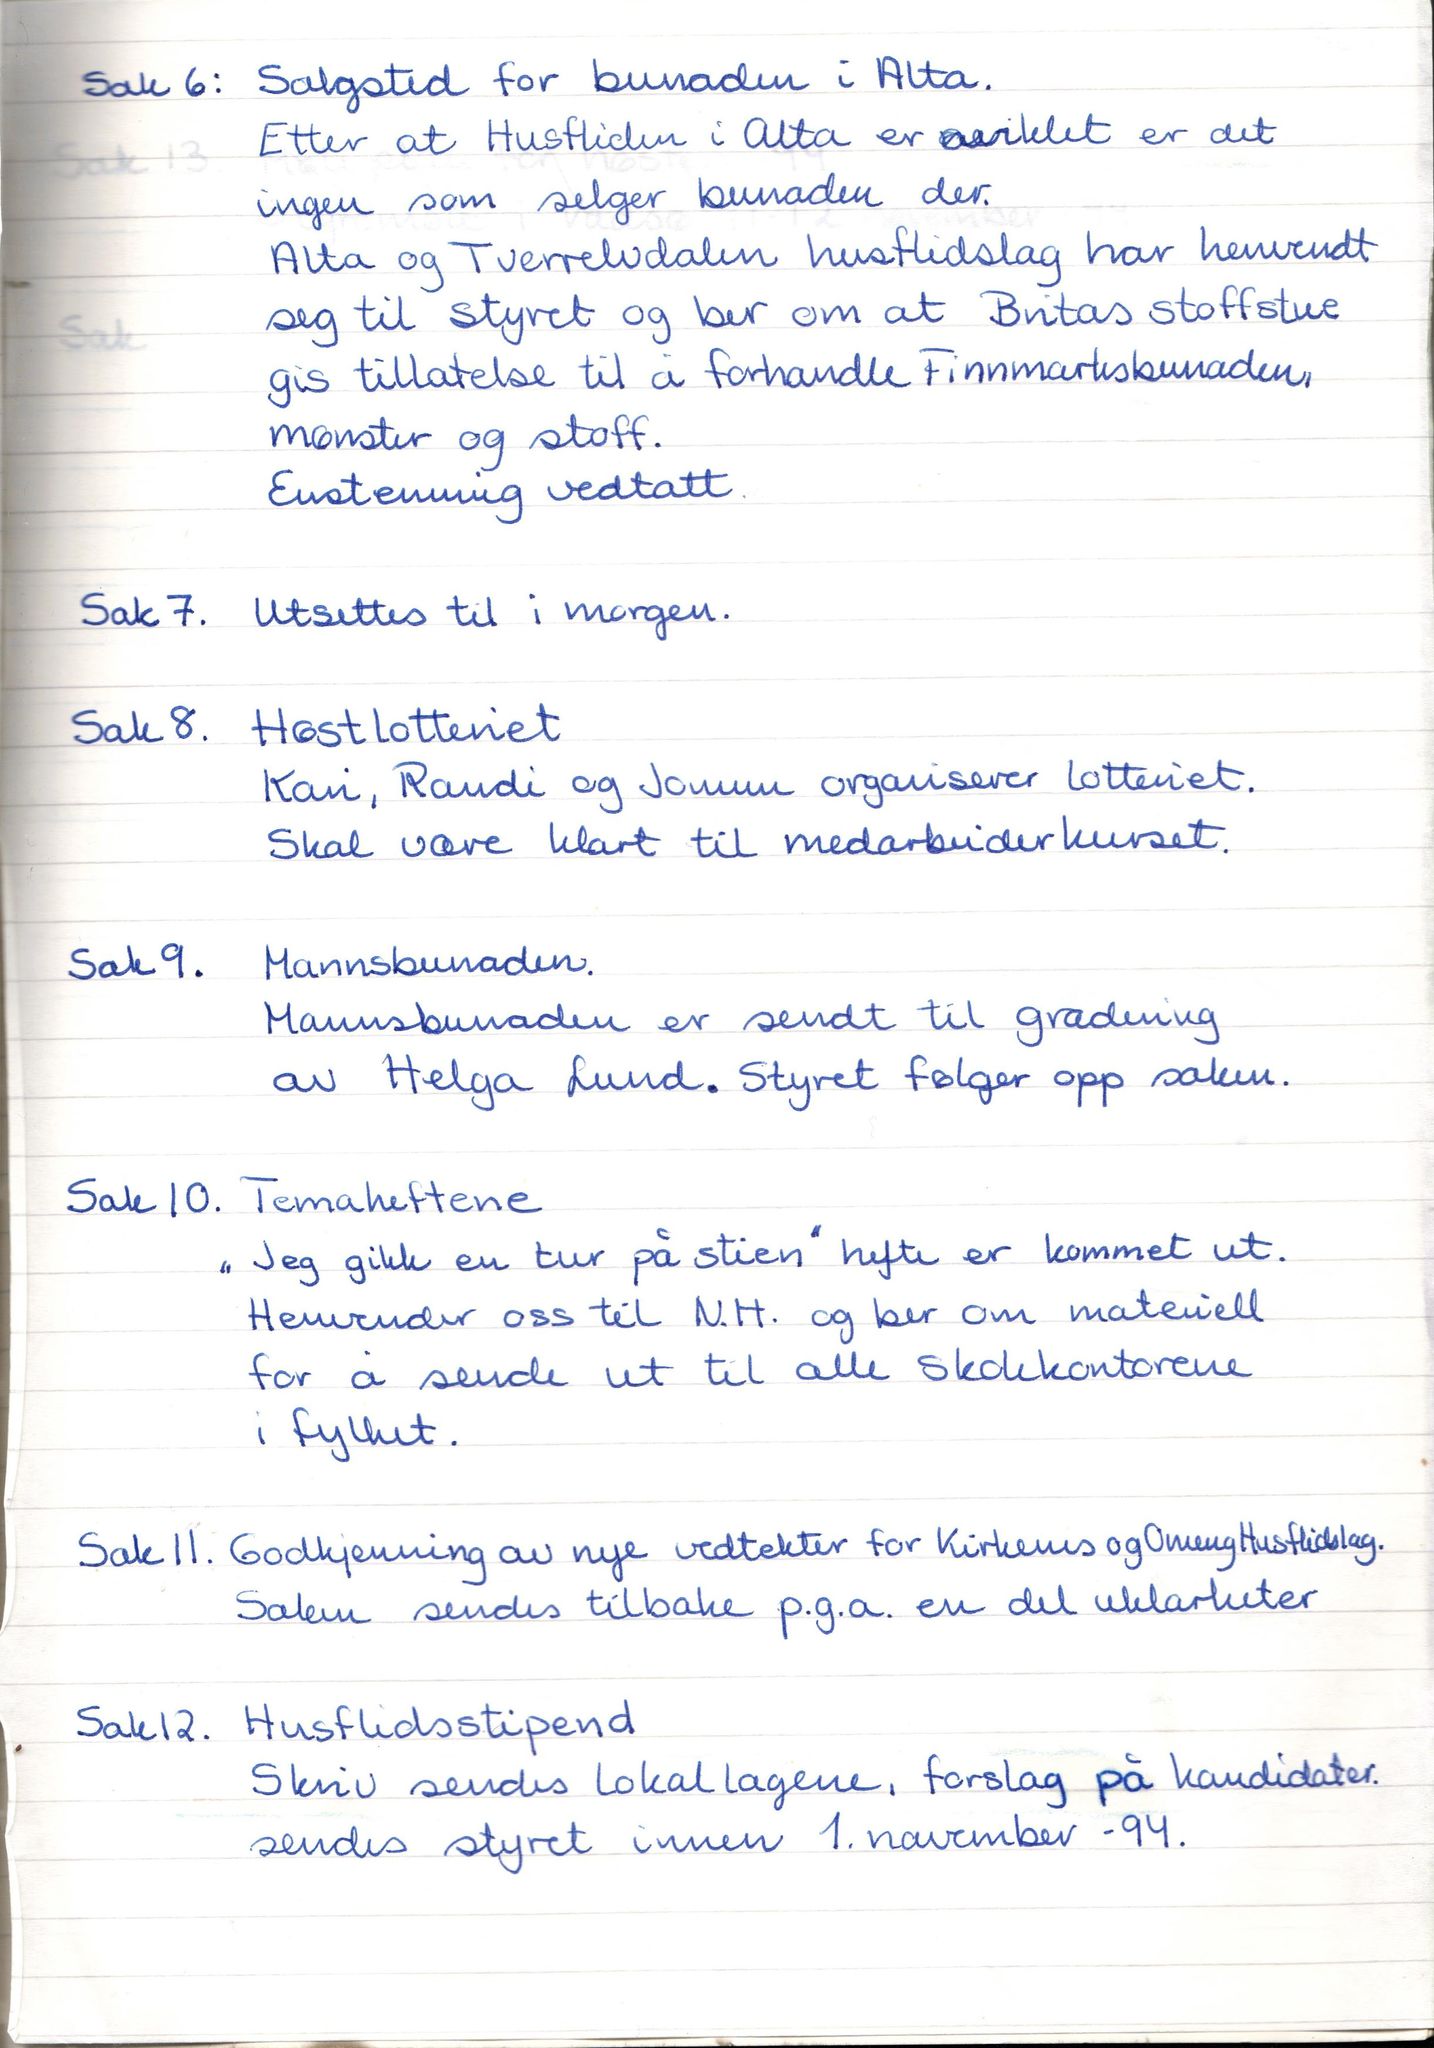 Sak 6: Salgsted for bunaden i Alta.
Etter at Husfliden i Alta er avviklet er det
ingen som selger bunaden der.
Alta og Tverrelvdalen husflidslag har henvendt
seg til styret og ber om at Britas stoffstue
gis tillatelse til å forhandle Finnmarksbunaden,
mønster og stoff.
Enstemmig vedtatt.
Sak 7. Utsettes til i morgen.
Sak 8. Høstlotteriet
Kari, Randi og Jorunn organiserer lotteriet.
Skal være klart til medarbeiderkurset.
Sak 9. Mannsbunaden.
Mannsbunaden er sendt til gradering
av Helga Lund. Styret følger opp saken.
Sak 10. Temaheftene
„Jeg gikk en tur på stien" hefte er kommet ut.
Henvender oss til N.H. og ber om materiell
for å sende ut til alle skolekontorene
i fylket.
Sak 11. Godkjenning av nye vedtekter for Kirkenes og Omeng Husflidslag.
Saken sendes tilbake p.g.a. en del uklarheter
Sak 12. Husflidsstipend
Skriv sendes lokallagene, forslag på kandidater.
sendes styret innen 1. november -94.